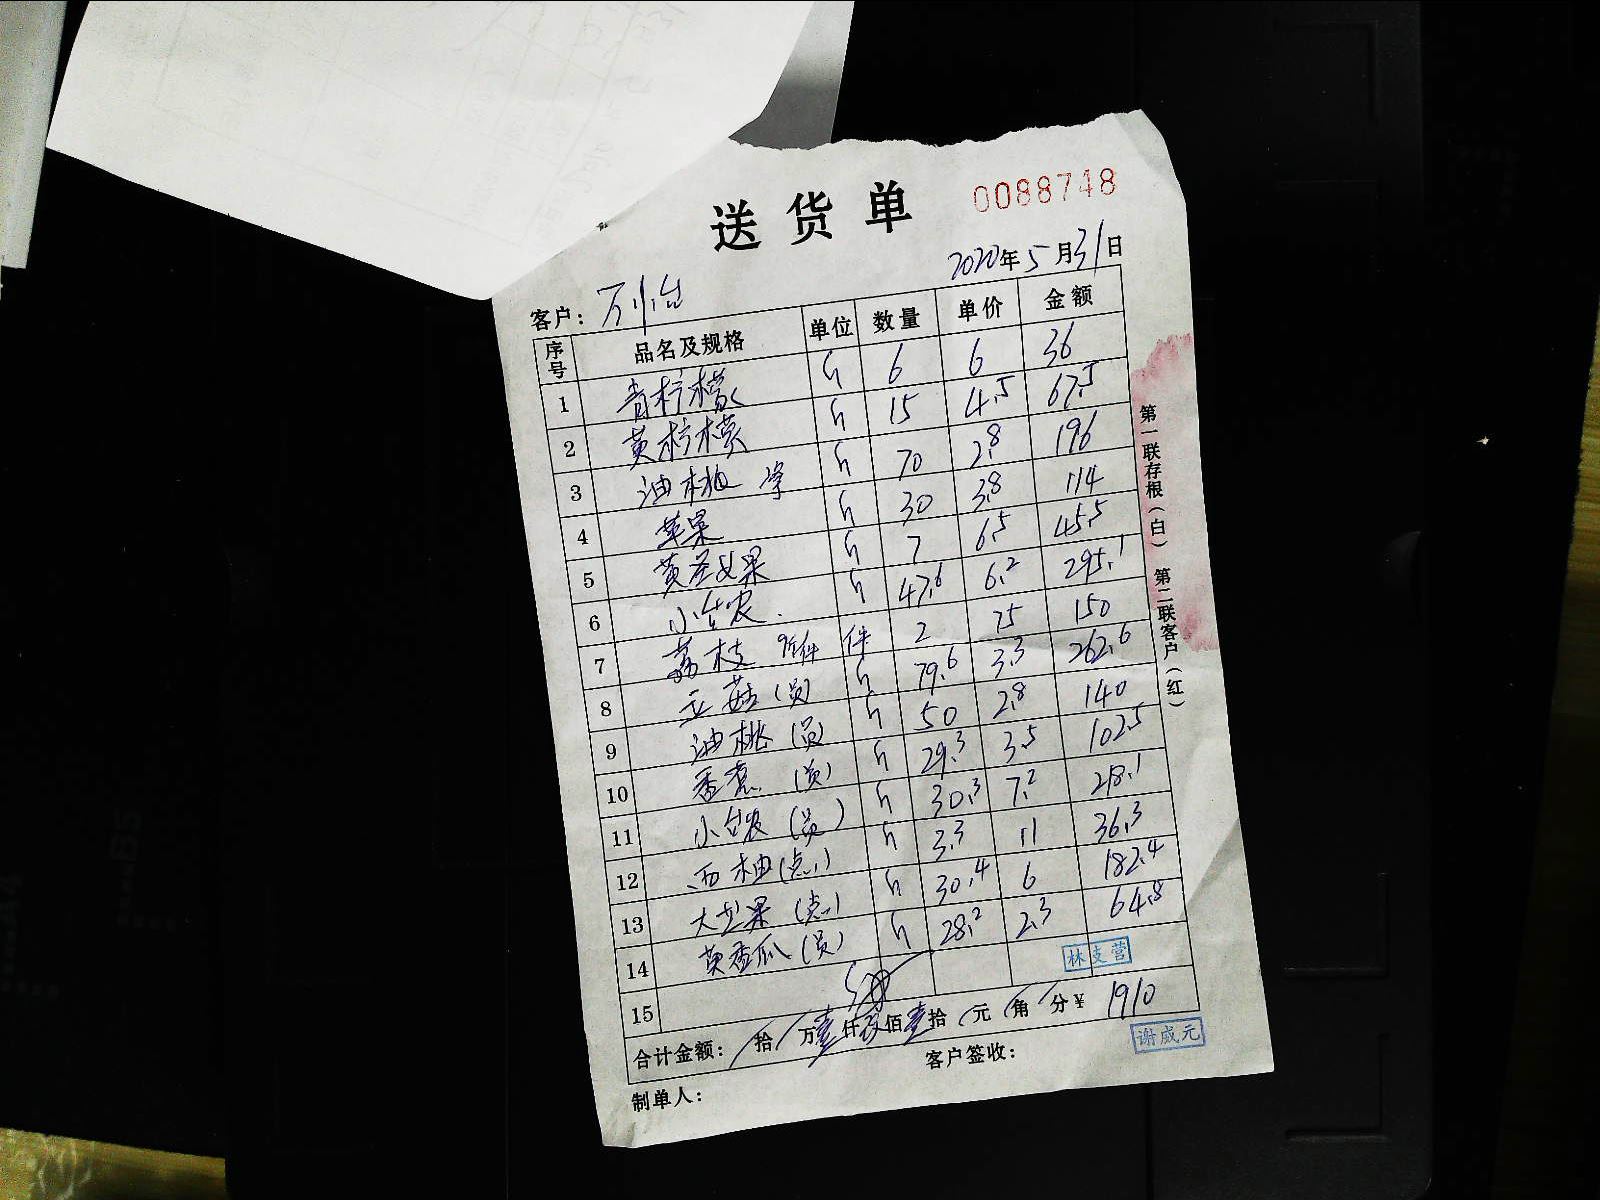 送货单 0088748
2020年5月31日
客户：万
序号 品名及规格 单位 数量 单价 金额
1 青柠檬 斤 6 6 36
2 黄柠檬 斤 15 4.5 67.5
3 油桃 斤 70 2.8 196
4 苹果 斤 30 3.8 114
5 黄圣女果 斤 7 6.5 45.5
6 小台农 斤 47.6 6.2 295.1
7 荔枝 件 2 75 150
8 (员) 斤 79.6 3.3 262.6
9 油桃 (员) 斤 50 2.8 140
10 香蕉 (员) 斤 29.3 3.5 102.5
11 小台农 (员) 斤 30.3 7.2 218.1
12 西柚 (点) 斤 3.3 11 36.3
13 火龙果 (点) 斤 30.4 6 182.4
14 黄香瓜 (员) 斤 28.2 2.3 64.8
15
林支营
合计金额： 拾 万壹仟玖佰壹拾 元 角 分¥ 1910
谢威元
制单人： 客户签收：
第一联存根（白） 第二联客户（红）